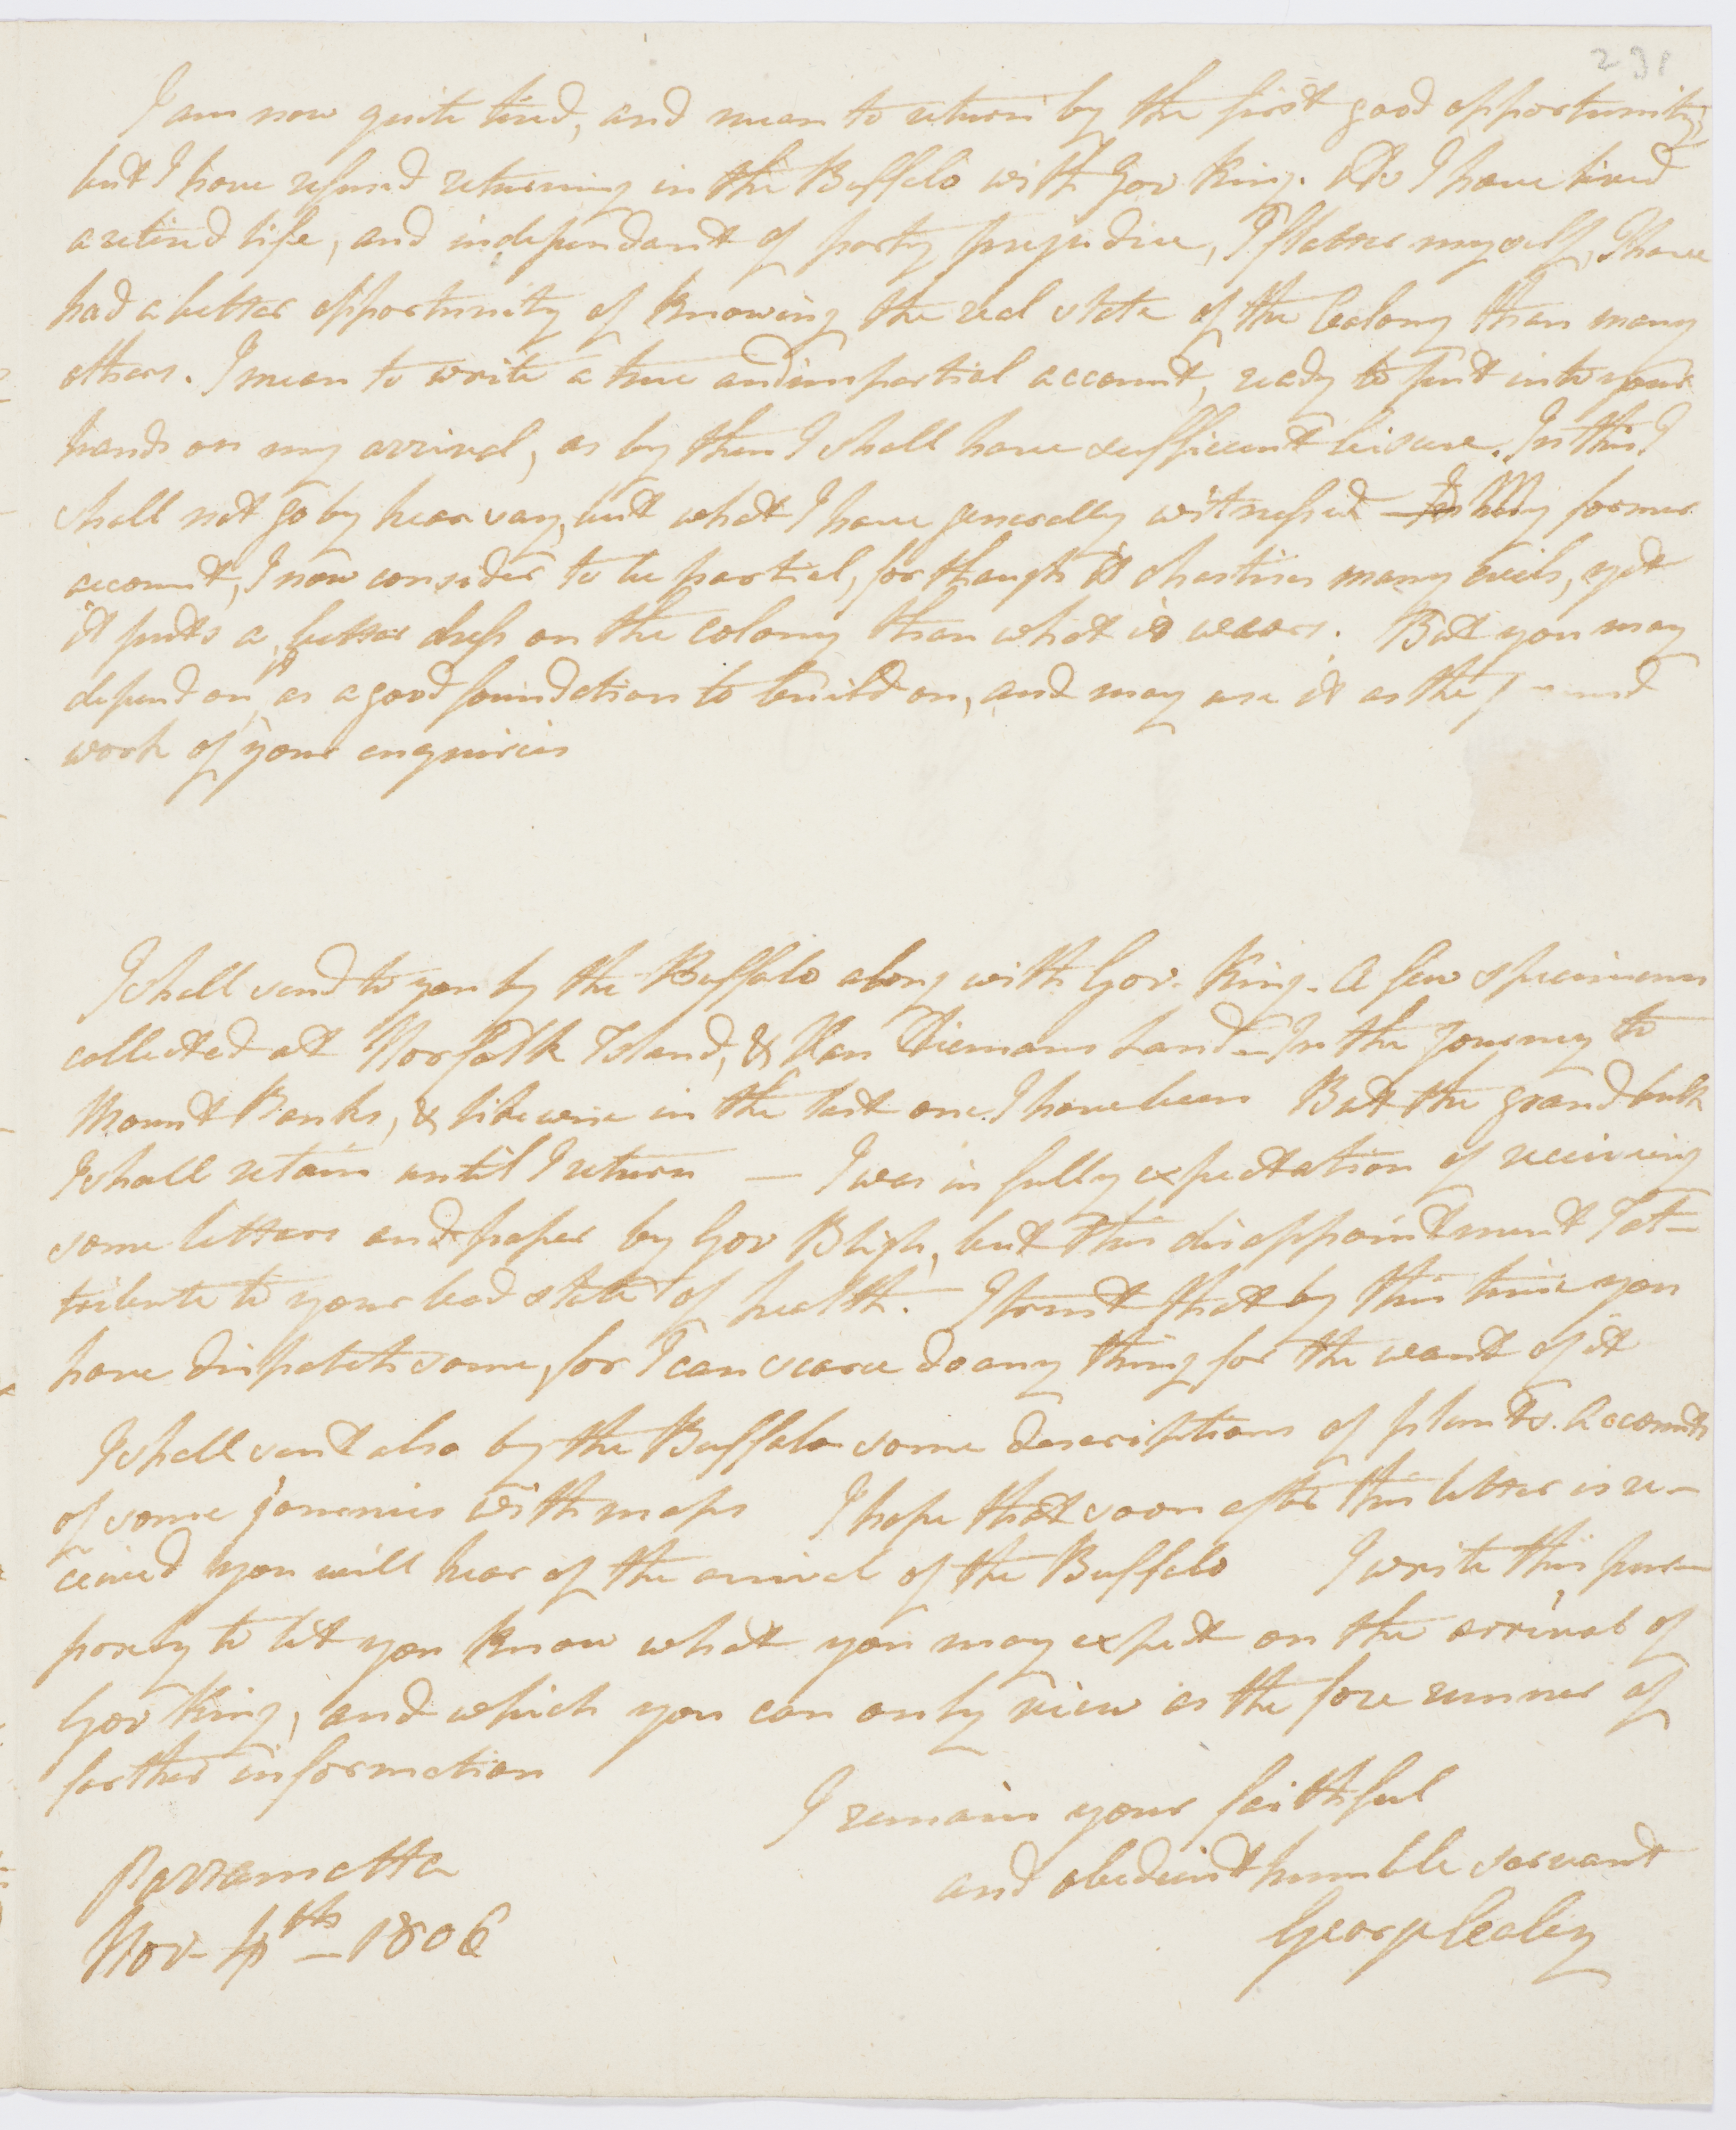 291
I am now quite tired, and mean to return by the first good opportunity,
but I have refused returning in the Buffalo with Gov King. As I have lived
a retired life, and independant of party prejudice, I flatter myself, I have
had a better opportunity of knowing the real state of the Colony than many
others. I mean to write a true and impartial account, ready to put into your
hands on my arrival, as by then I shall have sufficient leisure. In this I
shall not go by hear say, but what I have generally witnessed — My former
account, I now consider to be partial, for though it chastises many evils, yet
it puts a better dress on the colony than what it wears. But you may
depend on it as a good foundation to build on, and may use it as the
work of your enquiries
I shall send to you by the Buffalo along with Gov. King. A few specimens
collected at Norfolk Island, & Van Diemans Land — In the Journey to
Mount Banks, & likewise in the last one I have been But the grand bulk
I shall retain until I return — I was in fully expectation of receiving
some letters and paper by Gov Bligh, but this disappointment I at-
tribute to your bad state of health. — I trust that by this time you
have dispatch some, for I can scarce do any thing for the want of it
I shall sent also by the Buffalo some descriptions of plants. Accounts
of some journies with maps I hope that soon after this letter is re-
ceived you will hear of the arrival of the Buffalo I write this pur-
posely to let you know what you may expect on the arrival of
Gov King, and which you can only view as the fore runner of
farther information
I remain your faithful
and obedient humble servant
George Caley
Parramatta
Nov. 4th — 1806